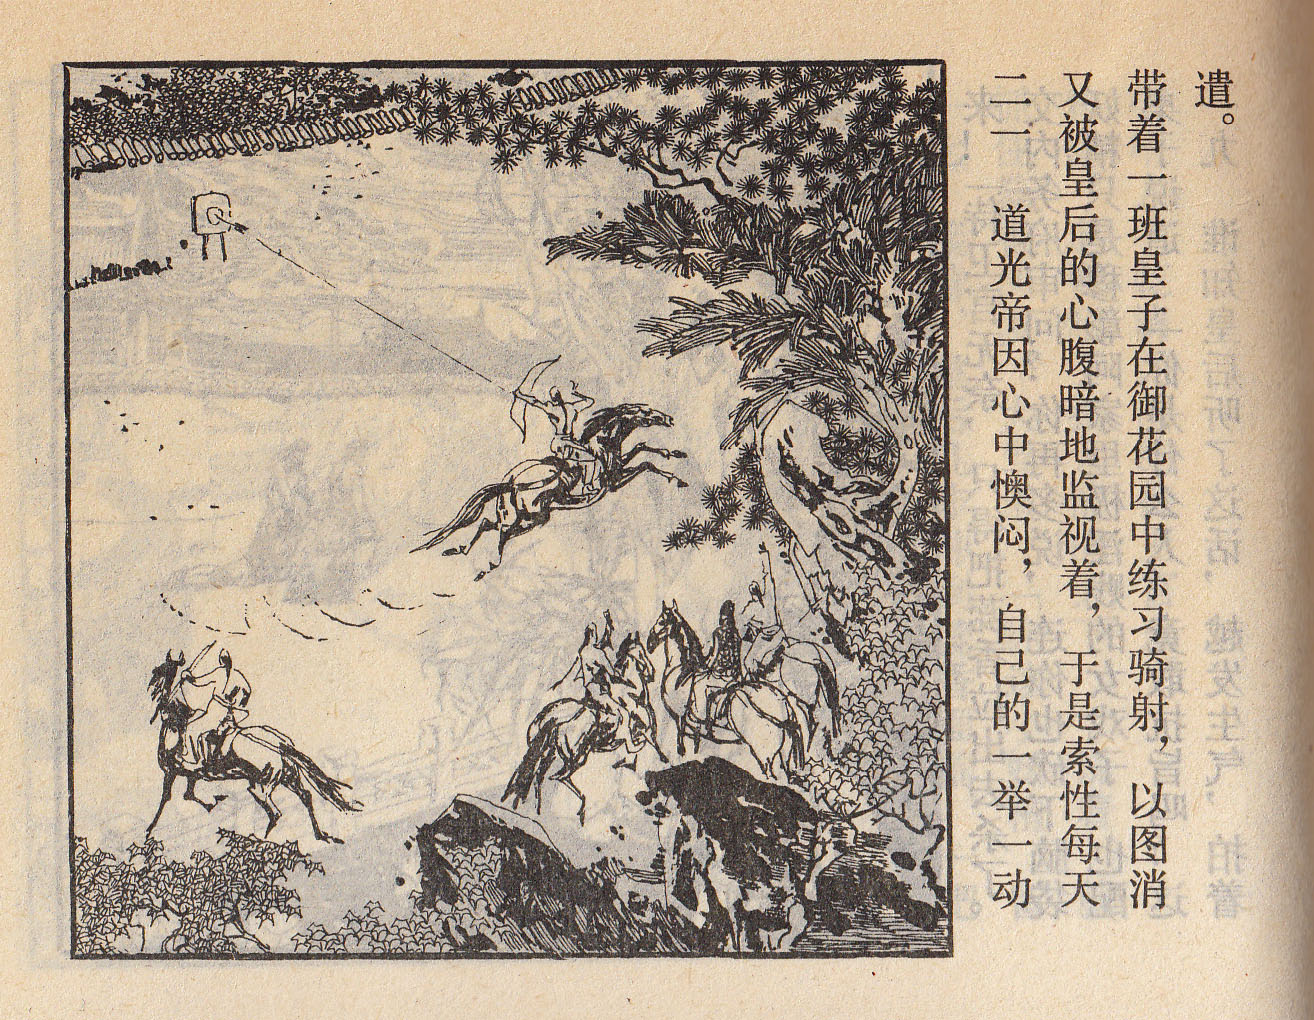 二一 道光帝因心中懊闷，自己的一举一动
又被皇后的心腹暗地监视着，于是索性每天
带着一班皇子在御花园中练习骑射，以图消
遣。